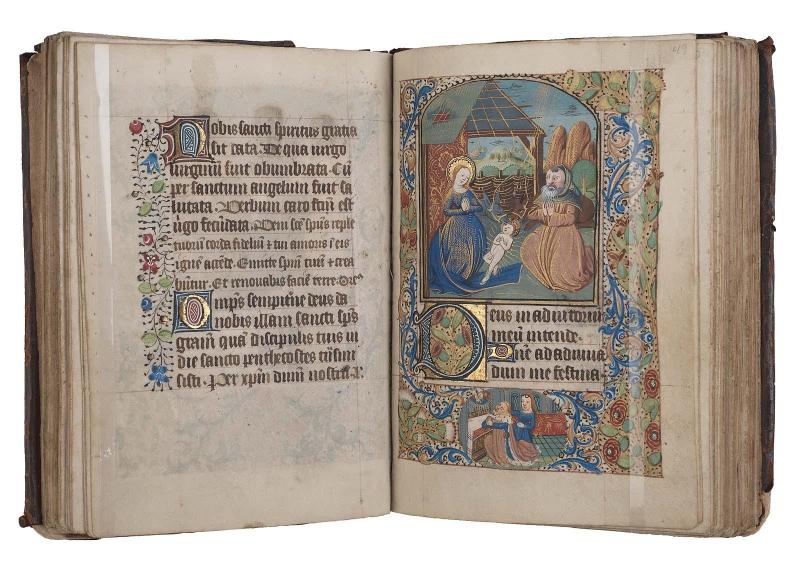 Nobis sancti spiritus gratia
sit data De qua virgo
virginũ fuit obumbrata Cũ
per sanctum angelum fuit sa
lutata Verbum caro factũ est
v̾go fecũdata Veni scẽ spũs reple
tuorum corda fidelium ⁊ tui amoris ĩ eis
ignẽ accẽde. Emitte spm̃ tuũ ⁊ crea
bũtur. Et renovabis faciẽ terre. Or̃
Omps̃ sempiterne deus da
nobis illam sancti sps̃
gratiam quã discipulis tuis in
die sancto penthecostes
sisti. Per xp̃m dñum nostrũ.
49
Deus in adiutorium
meũ intende.
Dñe ad adiuva
dum me festina